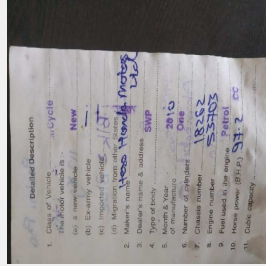 Detailed Description
1. Class of Vehicle M/Cycle
The motor vehicle is
(a) a new vehicle New
(b) Ex-army vehicle
(c) Imported vehicle
(d) Migration from other States
2. Maker's name Hero Honda Motors Ltd
3. Dealer's name & address
4. Type of body SWP
5. Month & Year
of manufacture 2010
6. Number of cylinders One
7. Chassis number 18262
8. Engine number 53703
9. Fuel used in the engine Petrol
10. Horse power (B.H.P.)
11. Cubic capacity 97.2 CC